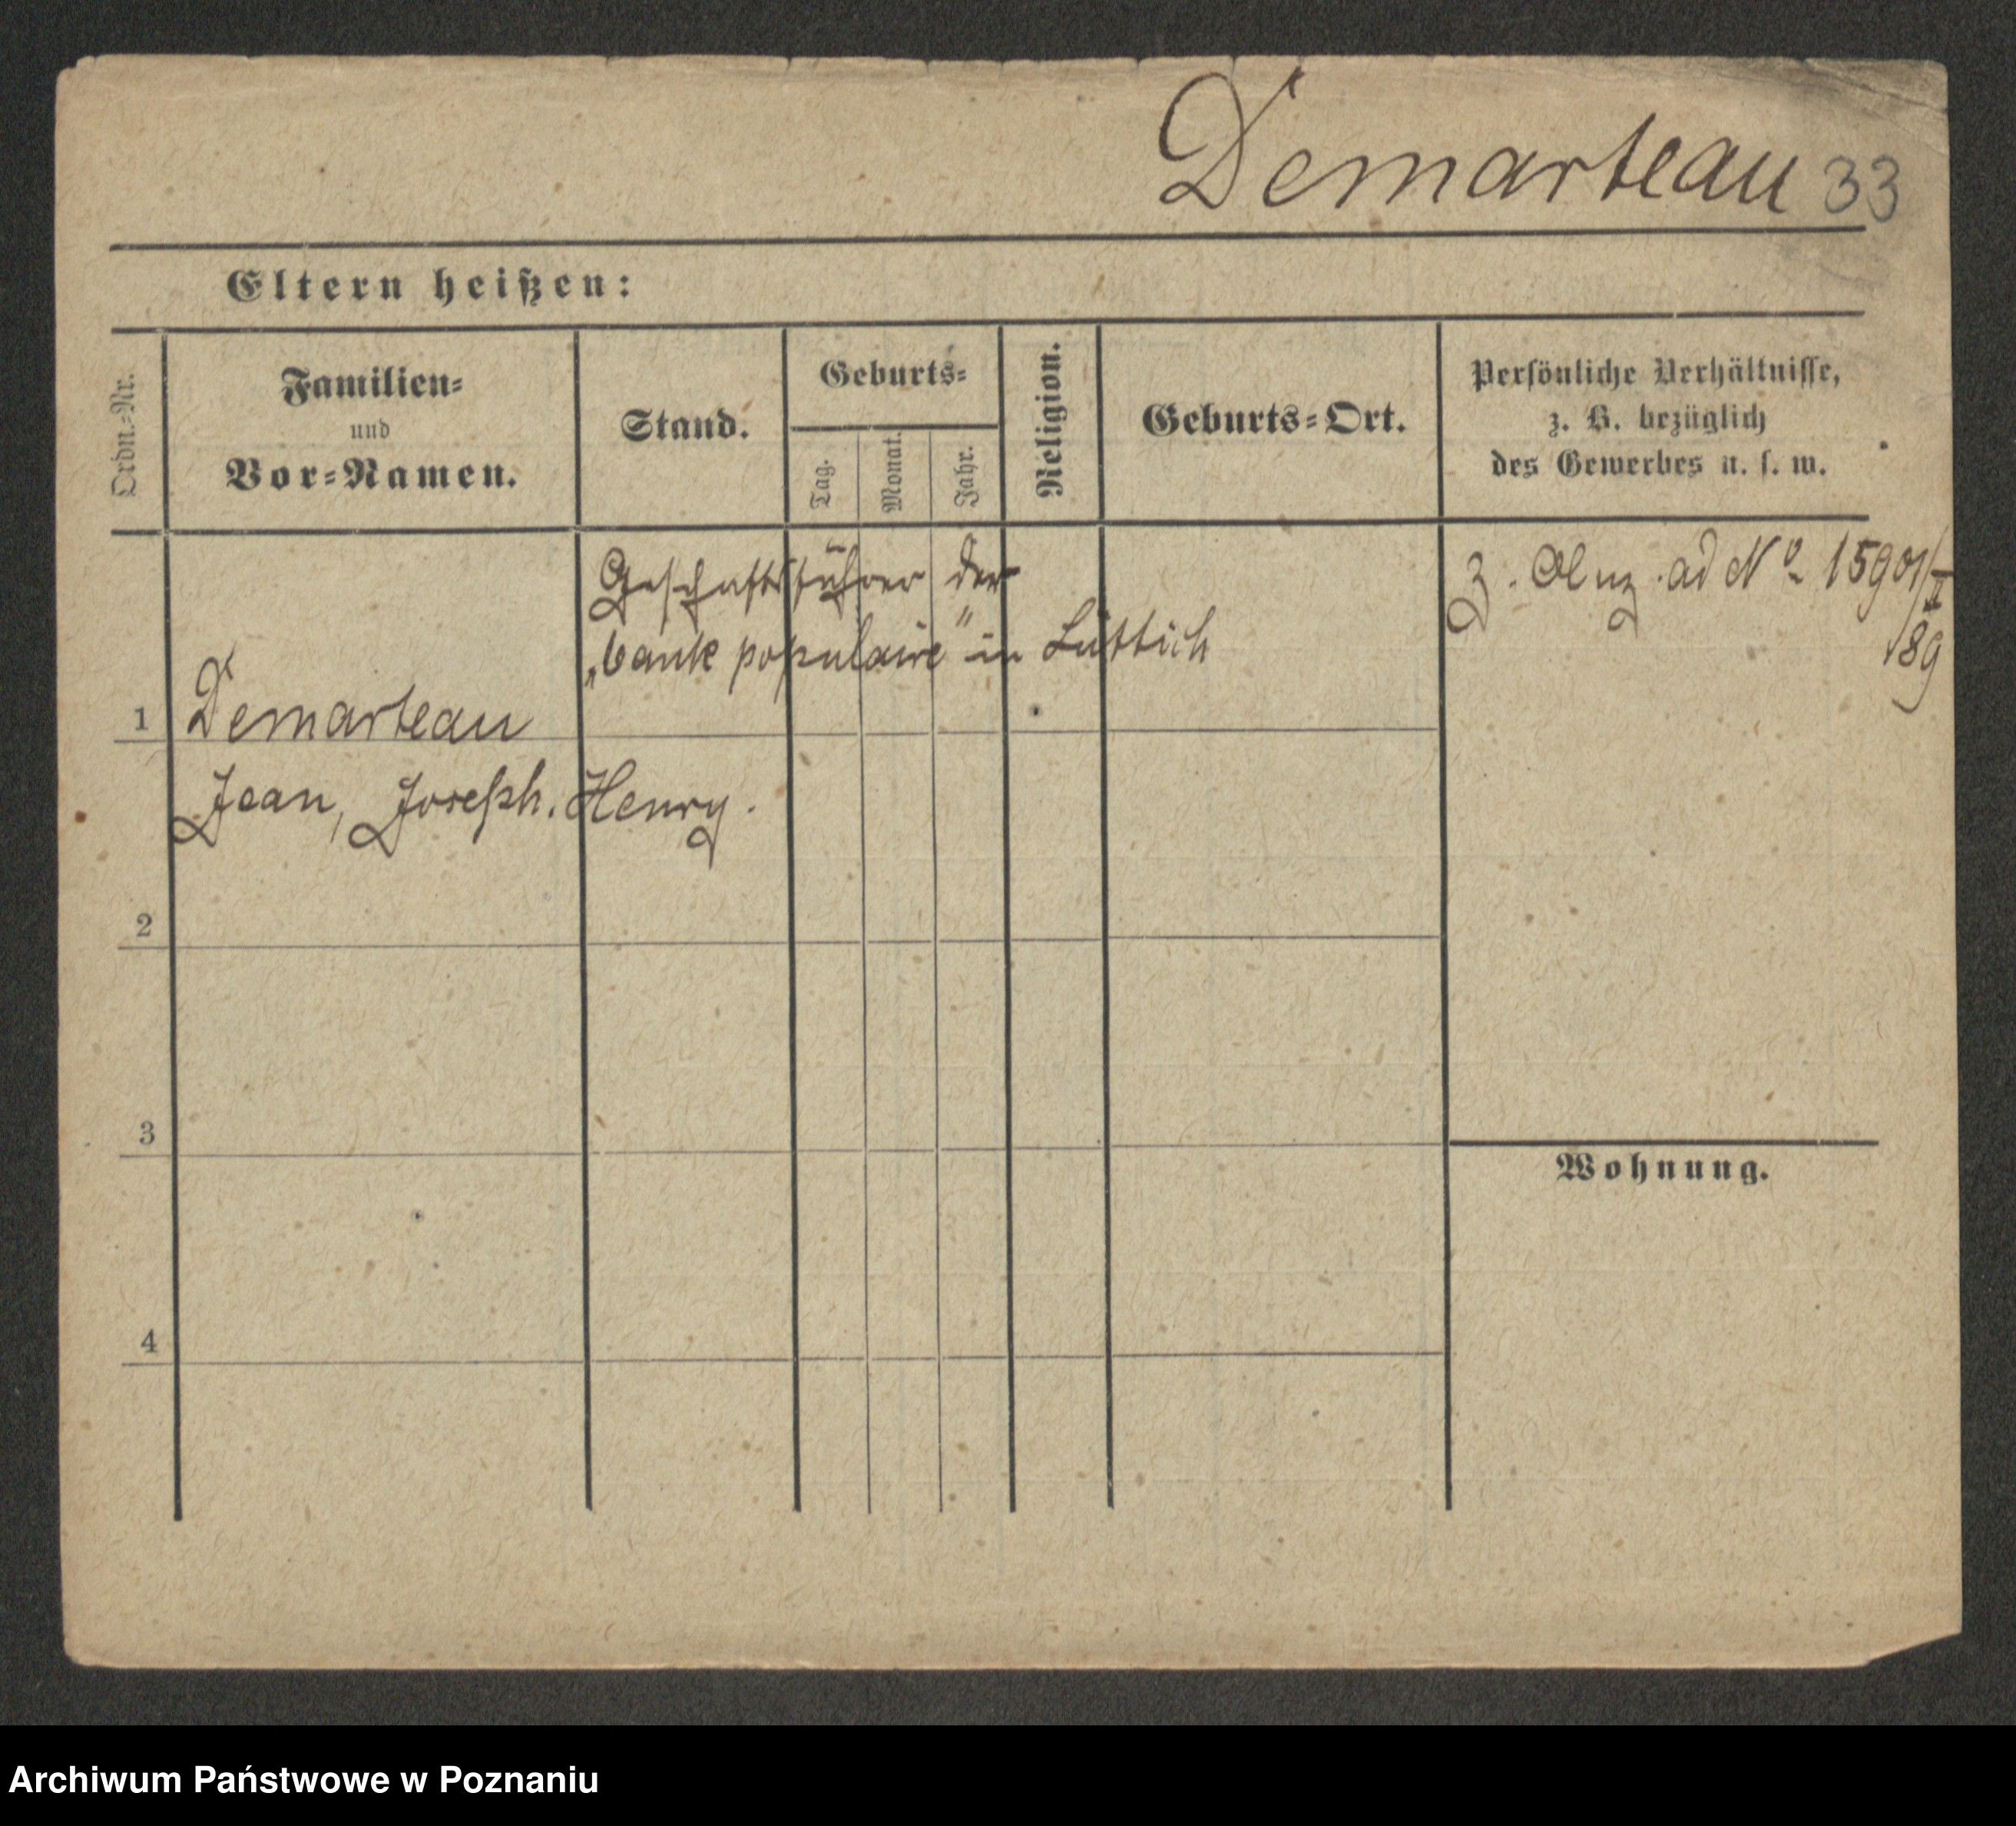 Demarteau 33
Eltern heißen:
Ordn.=Nr.
Familien=
und
Vor=Namen.
Stand.
Geburts=
Tag.
Monat.
Jahr.
Religion.
Geburts=Ort.
Persönliche Verhältnisse,
z. B. bezüglich
des Gewerbes u. s. w.
Geschäftsführer der
„bank populaire" in Lüttich
z. Anz. ad No 1590/
/89
1 Demarteau
Jean, Joseph. Henry.
2
3
Wohnung.
4
Archiwum Państwowe w Poznaniu